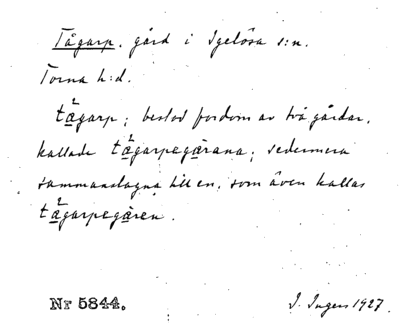 Tågarp. gård i Igelösa s:n.
Torna h:d.
tågarp; bestod fordom av två gårdar,
kallade tågarpegårana; sedermera
sammanslagna till en, som även kallas
tågarpegåren.
Nr 5844. I. Ingers 1927.